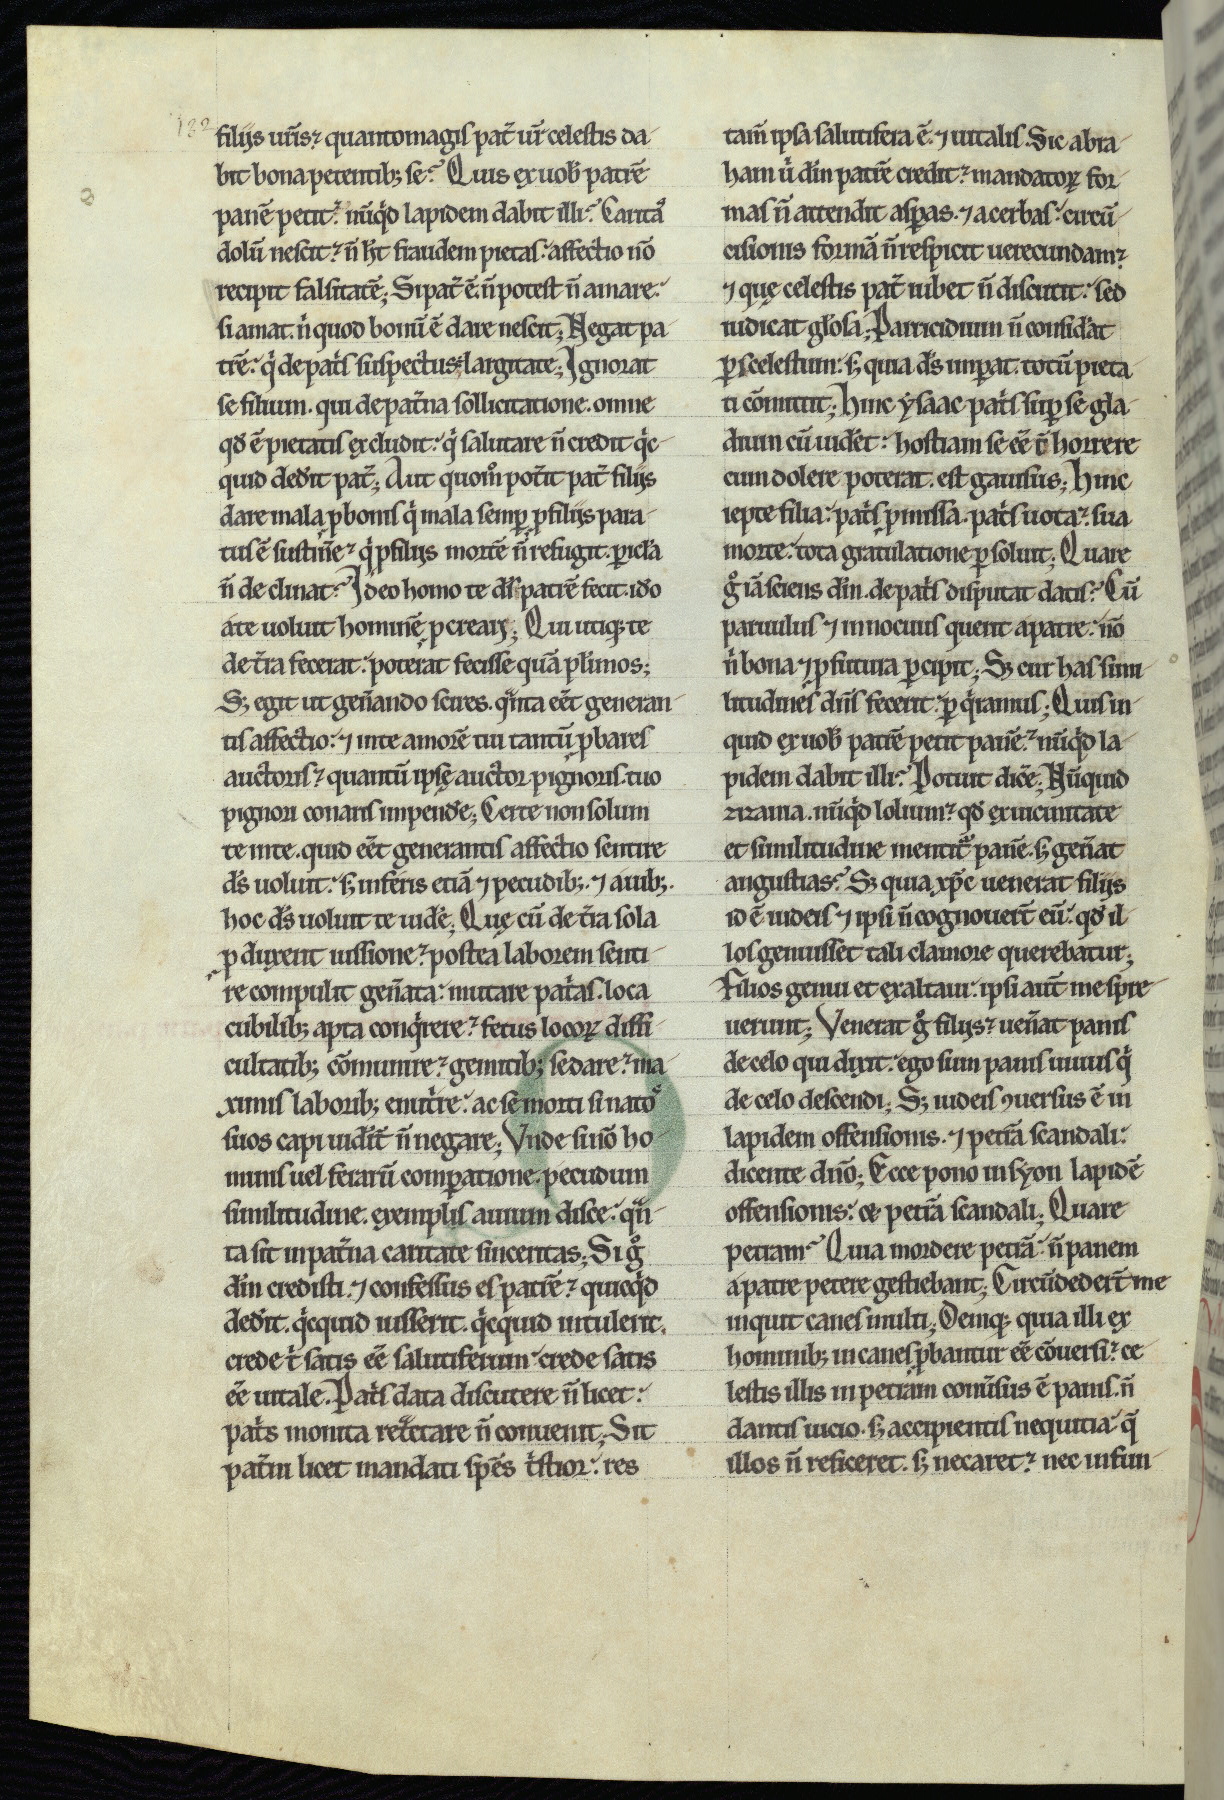 132
filijs ur̄is? quantomagis pat̄ ur̄ celestis da-
bit bona petentib; se? Quis ex uob̄ patrē
panē petit? nūq̇d lapidem dabit illi? Carita᷒
dolū nescit? n̄ h̄t fraudem pietas. affectio nō
recipit falsitatē; Si pat̄ ē. n̄ potest n̄ amare.
si amat. n̄ quod bonū ē dare nescit; Negat pa
trē. q̇ de pat̄s suspectus largitate; Ignorat
se filium. qui de pat̄na sollicitatione. omne
qd̄ ē pietatis excludit. q̇ salutare n̄ credit q̇c-
quid ded̄it pat̄; Aut quom̊ pot̄it pat̄ filijs
dare mala ꝓ bonis q̇ mala semꝑ ꝓ filijs para-
tus ē sustin̄e? q̇ ꝓ filijs mortē n̄ refugit. pericl̄a
n̄ de clinat? Ideo homo te ds̄ patrē fecit. ido
a te uoluit hominē ꝓcreari; Qui utiq; te
de t̄ra fecerat. poterat fecisse quā plimos;
S; egit ut gen̄ando scires. q̄nta eēt generan-
tis affectio. ⁊ in te amorē tui tantū ꝓbares
auctoris? quantū ipsę auctor pignoris. tuo
pignori conaris impend̄e; Certe non solum
te in te. quid eēt generantis affectio sentire
ds̄ uoluit. s; in feris etiā ⁊ pecudib;. ⁊ auib;.
hoc ds̄ uoluit te uid̄e; Quę cū de t̄ra sola
ꝓduxerit iussione? postea laborem senti-
re compulit gen̄ata. mutare pat̄as. loca
cubilib; apta conq̇rere? fetus locoꝝ diffi-
cultatib; cōmunire? gemitib; sedare? ma-
ximis laborib; enut̄re. ac se morti si nato᷒
suos capi uid̄it n̄ negare; Vnde sūo ho-
minis uel ferarū comꝑatione. pecudum
similitudine. exemplis auium disce. q̄n-
ta sit in pat̄na caritate sinceritas; Si g̊
dm̄ credisti. ⁊ confessus es patrē? quicq̇d
ded̄it. q̇cquid iusserit. q̇cquid intulerit.
crede t̄ satis eē salutiferum. crede satis
eē uitale. Pat̄s data discutere n̄ licet.
pat̄s monita ret̄ctare n̄ conuenit; Sit
pat̄ni licet mandati spēs t̄stior. res
tam̄ ipsa salutifera ē. ⁊ uitalis. Sic abra-
ham ū dm̄ patrē credit? mandatoꝝ for-
mas n̄ attendit asꝑas. ⁊ acerbas. circū-
cisionis formā n̄ respicit uerecundam?
⁊ quę celestis pat̄ iubet n̄ discutit. sed
iudicat gl̄osa; Parricidium n̄ considat
ꝑ scelestum. s; quia ds̄ imꝑat. totū pieta-
ti cōmittit; Hinc ysaac pat̄s suꝑ se gla-
dium cū uid̄et. hostiam se eē n̄ horrere
cum dolere poterat. est gauisus; Hinc
iepte filia. pat̄s ꝓmissa. pat̄s uota?. sua
morte. tota gratulatione ꝑsoluit; Quare
g̊ iā sciens dm̄. de pat̄s disputat datis? Cū
paruulus ⁊ innocuus querit a patre. nō
n̄ bona ⁊ ꝓfutura ꝑcipit; S; cur has simi-
litudines dn̄s fecerit. ꝑq̇ramus; Quis in-
quid ex uob̄ patrē petit panē? nūq̇d la-
pidem dabit illi? Potuit dic̄e; Nūquid
zizania. nūq̇d lolium? qd̄ ex uicinitate
et similitudine mentit᷑ panē. s; gen̄at
angustias? S; quia xp̄c uenerat filijs
id ē iudeis ⁊ ipsi n̄ cognouer̄t eū. qd̄ il-
los genuisset tali clamore querebatur;
Filios genui et exaltaui. ipsi aūt me spre-
uerunt; Venerat g̊ filijs? uen̄at panis
de celo qui dixit. ego sum panis uiuus q̇
de celo descendi; S; iudeis ꝯuersus ē in
lapidem offensionis. ⁊ petrā scandali.
dicente dn̄o; Ecce pono in syon lapidē
offensionis. et petrā scandali; Quare
petram? Quia mordere petrā. n̄ panem
a patre petere gestiebant; Circūdeder̄t me
inquit canes multi; Deniq; quia illi ex
hominib; in canes ꝓbantur eē cōuersi? ce-
lestis illis in petram conūsus ē panis. n̄
dantis uicio. s; accipientis nequitia q̄
illos n̄ reficeret. s; necaret? nec infun-